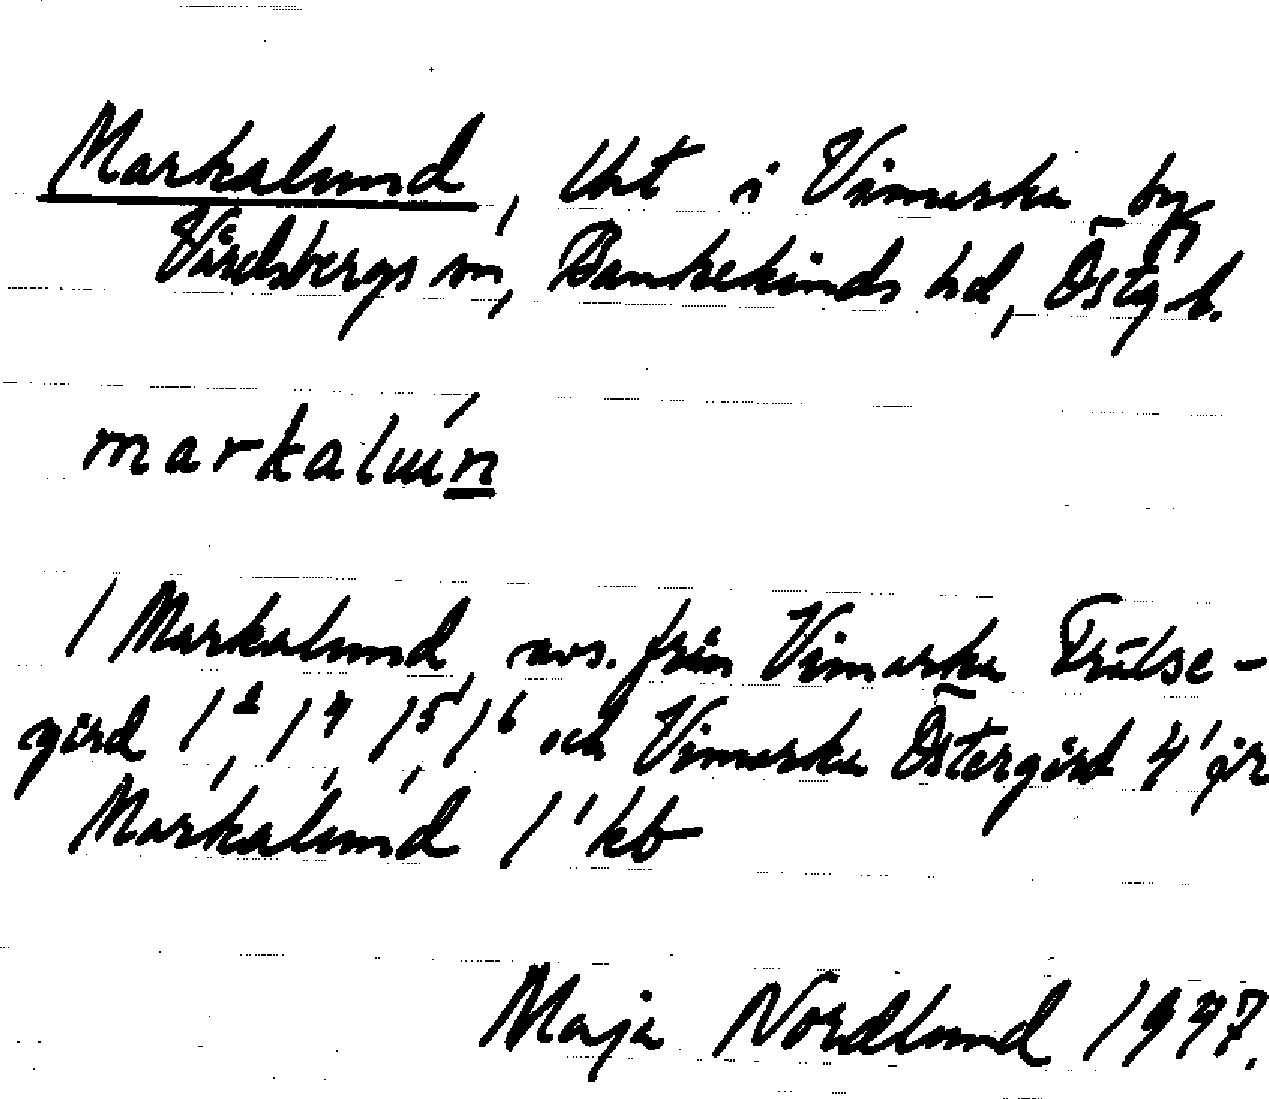 Markalund, Uht i Vimarka by,
Vårdsbergs sn, Bankekinds hd, Östg.l.
markalun
1 Markalund, avs. från Vimarka Frälse-
gård 1², 1⁴, 1⁵, 1⁶ och Vimarka Östergård 4¹ gör
Markalund 1¹ kb
Maja Nordlund 1947.